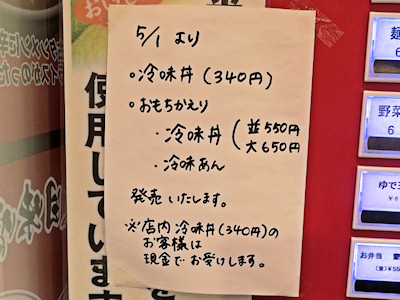 5/1 より
○冷味丼(340円)
○おもちかえり
・冷味丼(並550円
大650円
・冷味あん
発売いたします。
※店内 冷味丼(340円)の
お客様は
現金でお受けします。
使用しています
麺
6
野菜
6
ゆで玉
¥6
お弁当